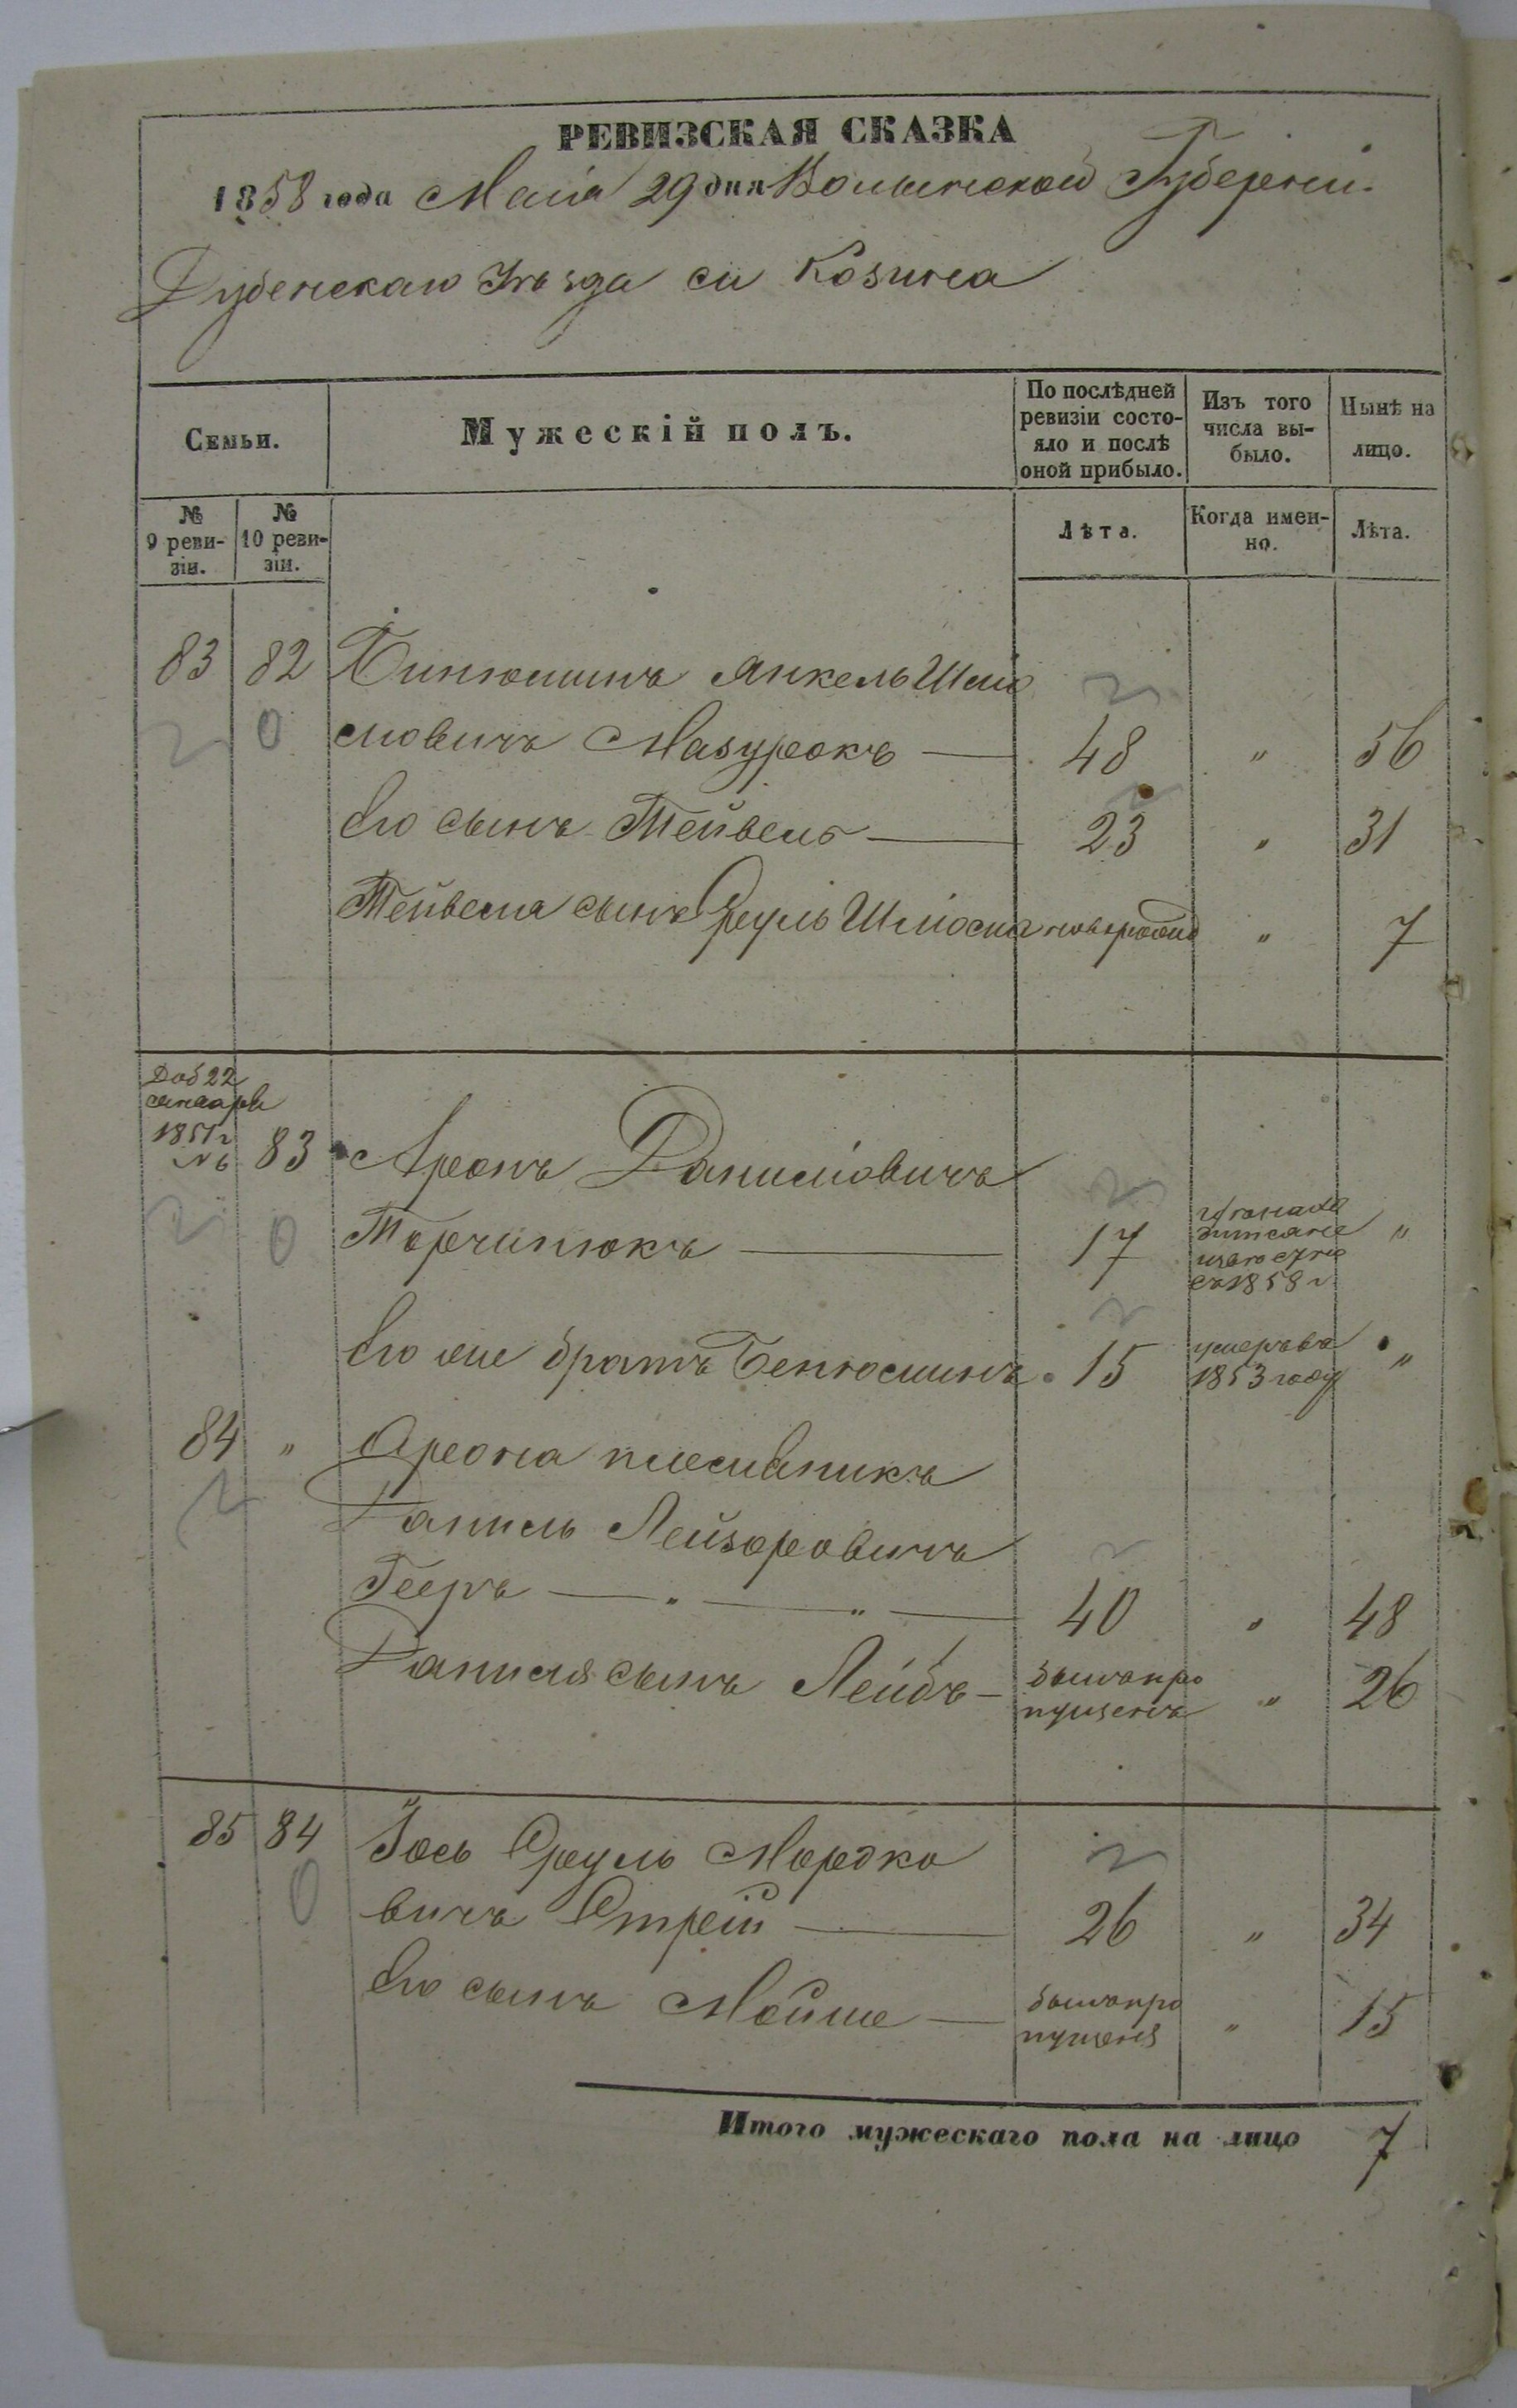 РЕВИЗСКАЯ СКАЗКА
1858 года Маія 29 дня Волынской Губерніи
Дубенскаго Уѣзда м. Козина
Семьи.
Мужескій полъ.
По послѣдней ревизіи состо-
яло и послѣ оной прибыло.
Изъ того числа вы-
было.
Нынѣ на лицо.
№ 9 реви-
зіи.
№ 10 реви-
зіи.
Лѣта.
Когда имен-
но.
Лѣта.
83 82 Бинюминъ Янкель Шліо
мовичъ Мазурокъ — 48 " 56
Его сынъ Тейвель — 23 " 31
Тейвеля сынъ Сруль Шліома новорожд " 7
Доб 22
января
1851 г
№ 6 83 Аронъ Даниліовичъ
Торчинюкъ — 17 1858 г "
Его же брат Бенюминъ 15 умеръ въ
1853 году "
84 " Арона племяникъ
Даниль Лейзоровичъ
Геръ — " — " — 40 " 48
Даниля сынъ Лейбъ — былъ про
пущенъ " 26
85 84 Іось Сруль Мордко
вичъ Стрій — 26 " 34
Его сынъ Мойше — былъ про
пущенъ " 15
Итого мужескаго пола на лицо 7